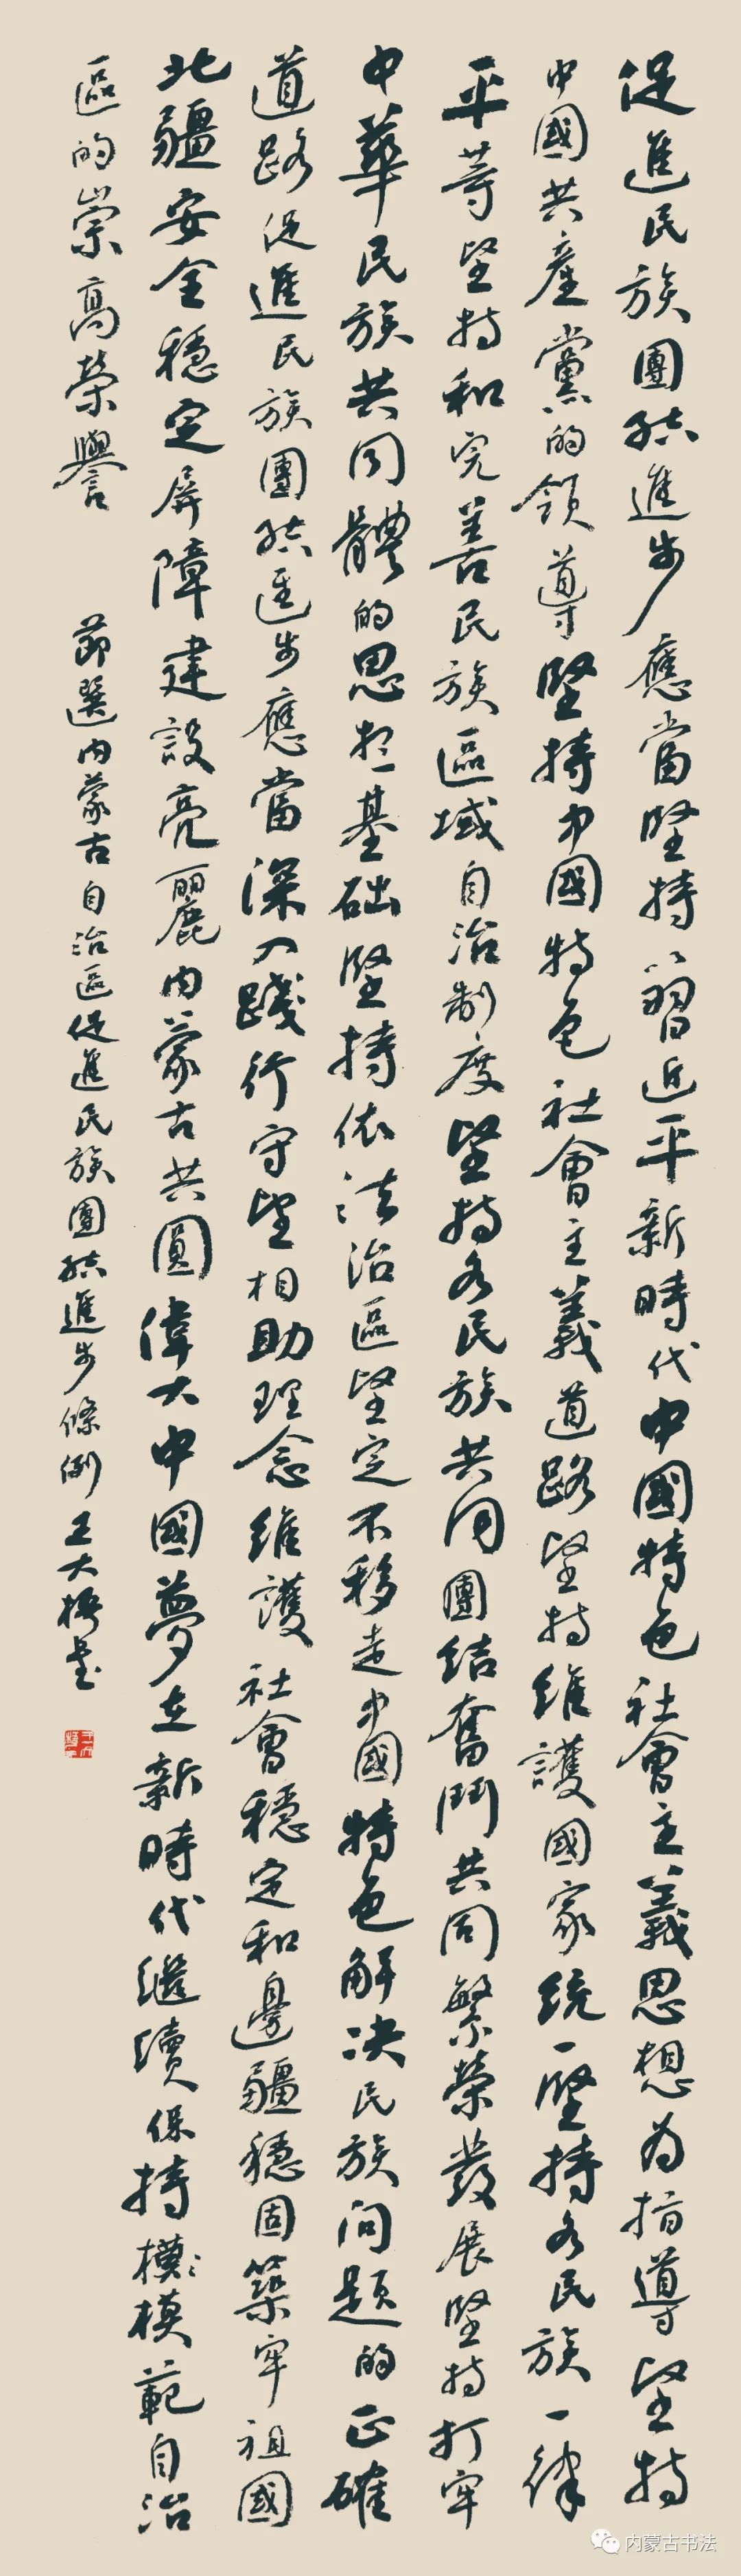 促進民族團結進步應當堅持以習近平新時代中國特色社會主義思想為指導堅持
中國共產黨的領導堅持中國特色社會主義道路堅持維護國家統一堅持各民族一律
平等堅持和完善民族區域自治制度堅持各民族共同團結奮鬥共同繁榮發展堅持打牢
中華民族共同體的思想基础堅持依法治區堅定不移走中國特色解決民族问题的正確
道路促進民族團結進步應當深入踐行守望相助理念維護社會穩定和邊疆穩固築牢祖國
北疆安全穩定屏障建設亮麗內蒙古共圓偉大中國夢在新時代繼續保持模模範自治
區的崇高榮譽
節選內蒙古自治區促進民族團結進步條例 王大梅書
内蒙古书法